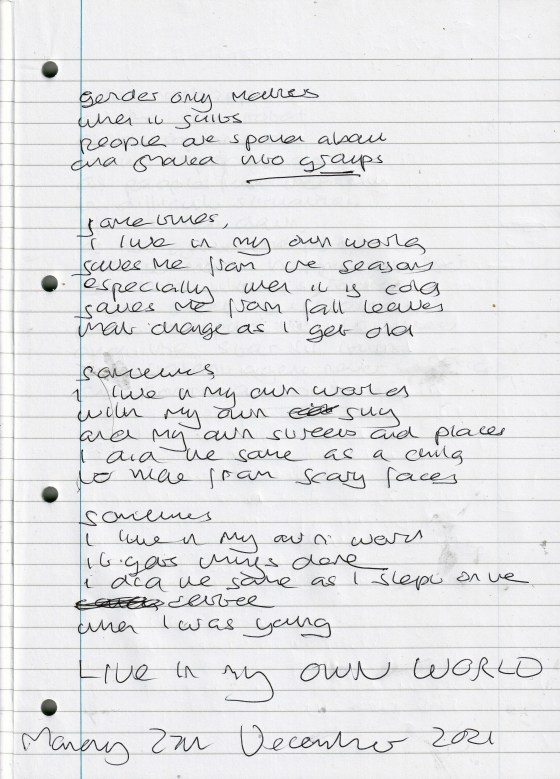 gender only matters
when it suits
people are spoken about
and placed into groups
sometimes,
i live in my own world
saves me from the seasons
especially when it is cold
saves me from fall leaves
that change as I get old
sometimes
i live in my own world
with my own sky
and my own streets and places
i did the same as a child
to hide from scary faces
sometimes
i live in my own world
it gets things done
i did the same as I slept on the
settee
when I was young
LIVE IN my OWN WORLD
December 2021